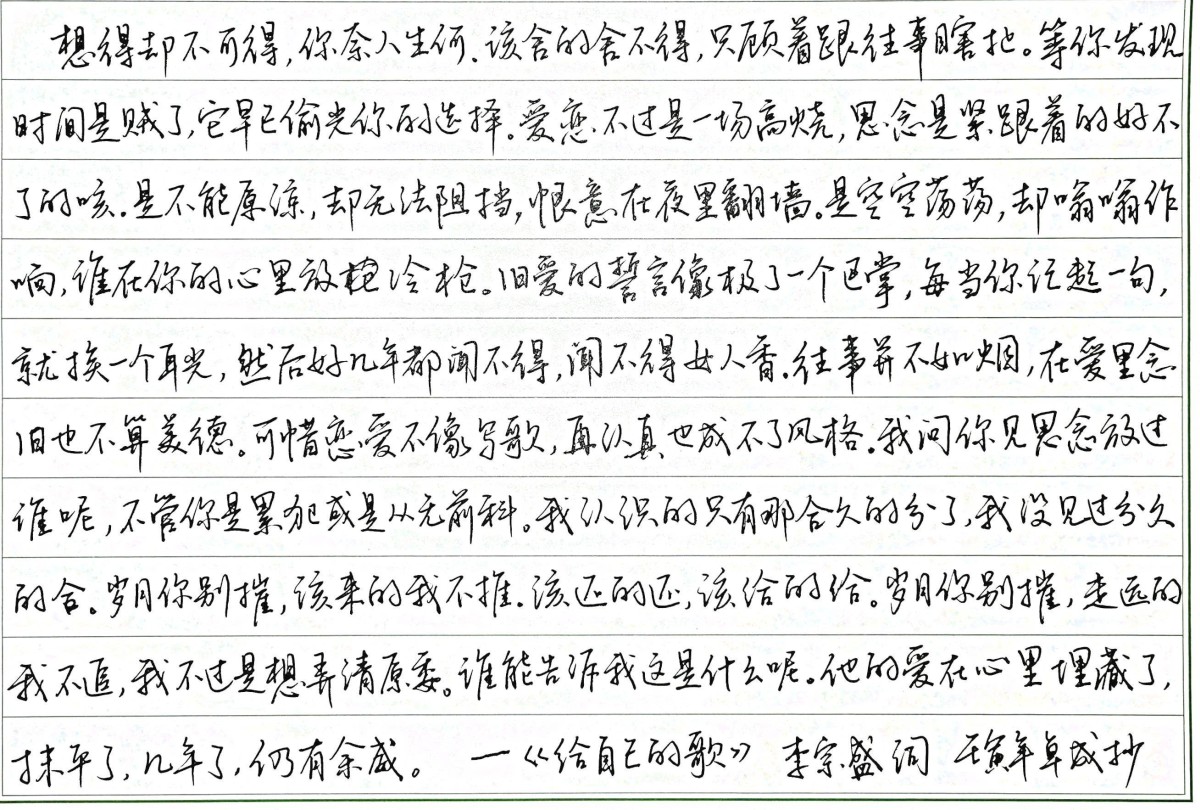 想得却不可得，你奈人生何。该舍的舍不得，只顾着跟往事瞎扯。等你发现
时间是贼了，它早已偷光你的选择。爱恋不过是一场高烧，思念是紧跟着的好不
了的咳。是不能原谅，却无法阻挡，恨意在夜里翻墙。是空空荡荡，却嗡嗡作
响，谁在你的心里放冷枪。旧爱的誓言像极了一个巴掌，每当你记起一句，
就挨一个耳光，然后好几年都闻不得，闻不得女人香。往事并不如烟，在爱里念
旧也不算美德。可惜恋爱不像写歌，再认真也成不了风格。我问你见思念放过
谁呢，不管你是累犯或是从无前科。我认识的只有那合久的分了，我没见过分久
的合。岁月你别摧，该来的我不推。该还的还，该给的给。岁月你别摧，走远的
我不追，我不过是想弄清原委。谁能告诉我这是什么呢。他的爱在心里埋藏了，
抹平了，几年了，仍有余威。 —《给自己的歌》 李宗盛词 壬寅年 抄